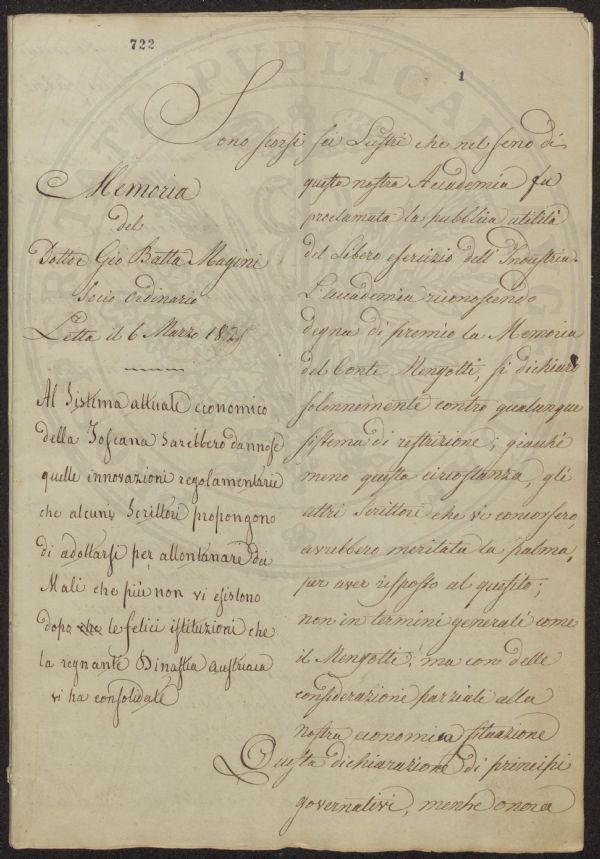 722
1
Memoria
del
Dottor Gio Batta Magini
Socio Ordinario
Letta il 6 Marzo 1825
Al Sistema attuale economico
della Toscana sarebbero dannose
quelle innovazioni regolamentarie
che alcuni Scrittori propongono
di adottarsi per allontanare dei
Mali che più non vi esistono
dopo che le felici istituzioni che
la regnante Dinastia austriaca
vi ha consolidate
Sono scorsi sei Lustri che nel seno di
questa nostra Accademia fu
proclamata la pubblica utilità
del Libero esercizio dell'Industria.
L'accademia riconoscendo
degna di premio la Memoria
del Conte Mengotti, si dichiarò
solennemente contro qualunque
sistema di restrizione; giacché
meno questa circostanza, gli
altri Scrittori che vi concorsero,
avrebbero meritata la palma,
per aver risposto al quesito;
non in termini generali come
il Mengotti; ma con delle
considerazione parziali alla
nostra economica situazione
Questa dichiarazione di principi
governativi, mentre onora